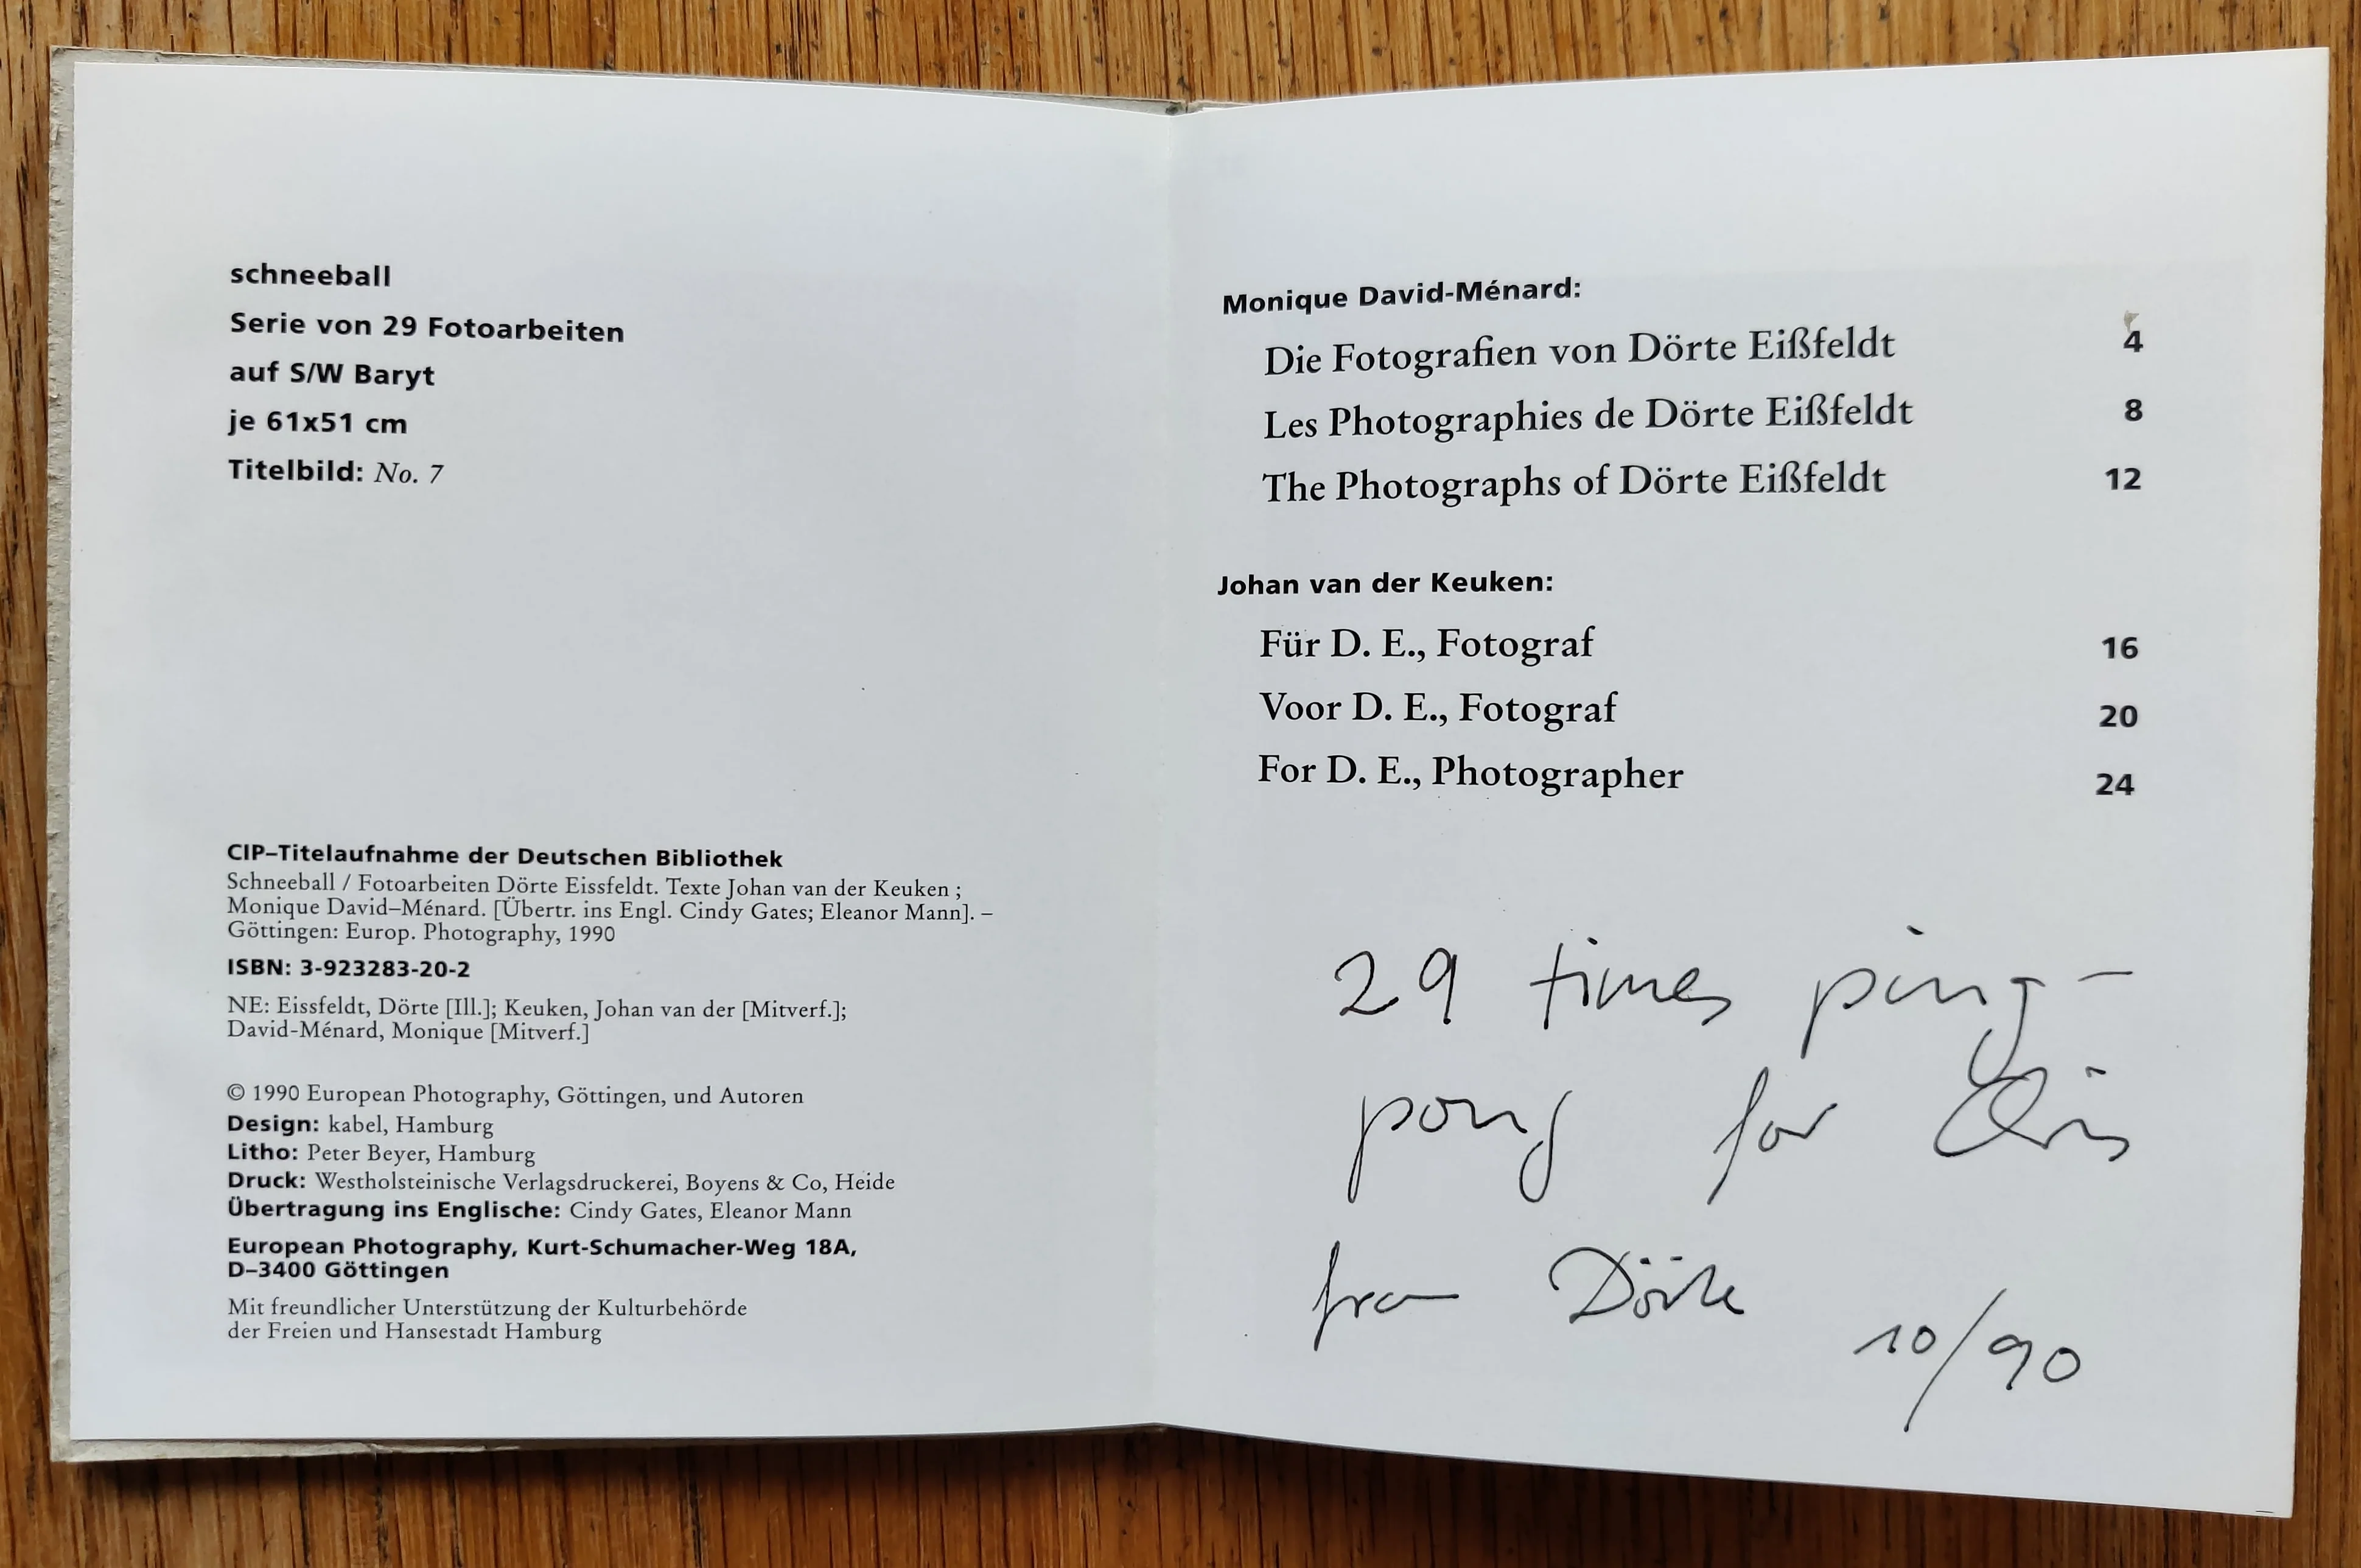 schneeball
Serie von 29 Fotoarbeiten
auf S/W Baryt
je 61x51 cm
Titelbild: No. 7
CIP–Titelaufnahme der Deutschen Bibliothek
Schneeball / Fotoarbeiten Dörte Eissfeldt. Texte Johan van der Keuken ;
Monique David–Ménard. [Übertr. ins Engl. Cindy Gates; Eleanor Mann]. –
Göttingen: Europ. Photography, 1990
ISBN: 3-923283-20-2
NE: Eissfeldt, Dörte [Ill.]; Keuken, Johan van der [Mitverf.];
David-Ménard, Monique [Mitverf.]
© 1990 European Photography, Göttingen, und Autoren
Design: kabel, Hamburg
Litho: Peter Beyer, Hamburg
Druck: Westholsteinische Verlagsdruckerei, Boyens & Co, Heide
Übertragung ins Englische: Cindy Gates, Eleanor Mann
European Photography, Kurt-Schumacher-Weg 18A,
D–3400 Göttingen
Mit freundlicher Unterstützung der Kulturbehörde
der Freien und Hansestadt Hamburg
Monique David-Ménard:
Die Fotografien von Dörte Eißfeldt 4
Les Photographies de Dörte Eißfeldt 8
The Photographs of Dörte Eißfeldt 12
Johan van der Keuken:
Für D. E., Fotograf 16
Voor D. E., Fotograf 20
For D. E., Photographer 24
29 times ping-
pong for
from Dörte 10/90